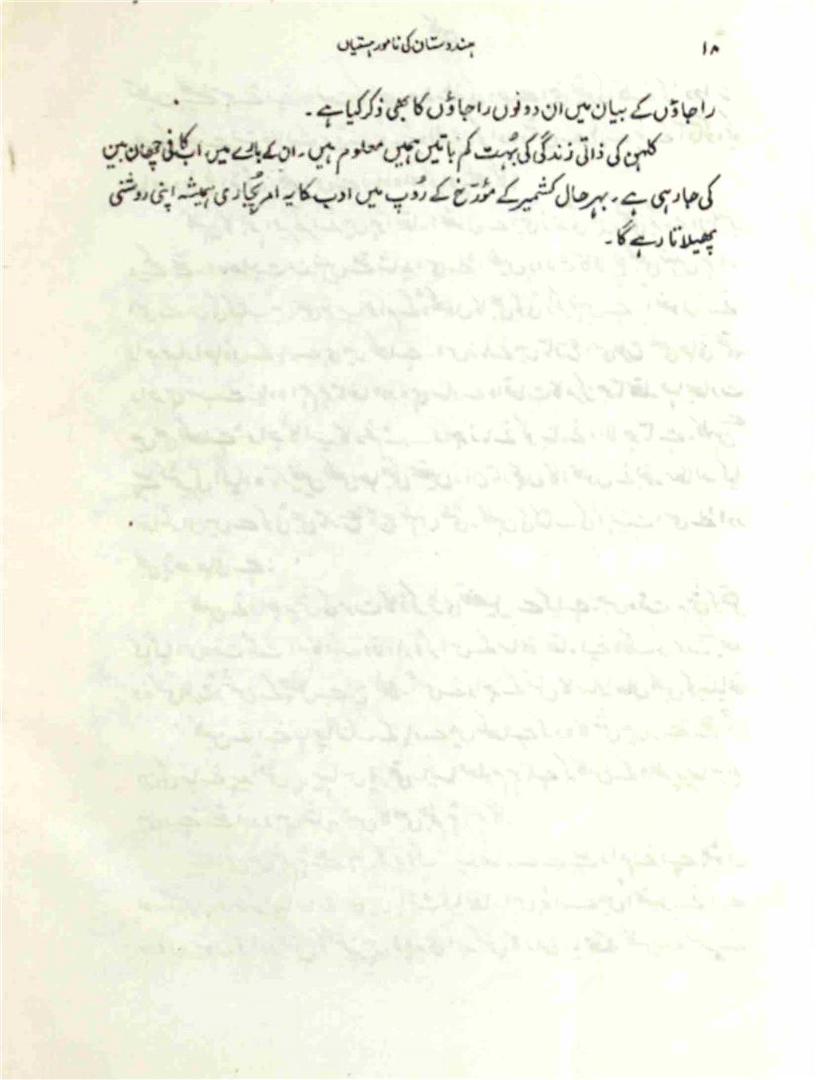 ۱۸
ہندوستان کی نامور ہستیاں
راجاؤں کے بیان میں ان دونوں راجاؤں کا بھی ذکر کیا ہے۔
کلہن کی ذاتی زندگی کی بہُت کم باتیں ہمیں معلوم ہیں۔ ان کے بارے میں اب کافی چھان بین
کی جا رہی ہے۔ بہر حال کشمیر کے مؤرّخ کے رُوپ میں ادب کا یہ امر پُجاری ہمیشہ اپنی روشنی
پھیلاتا رہے گا۔